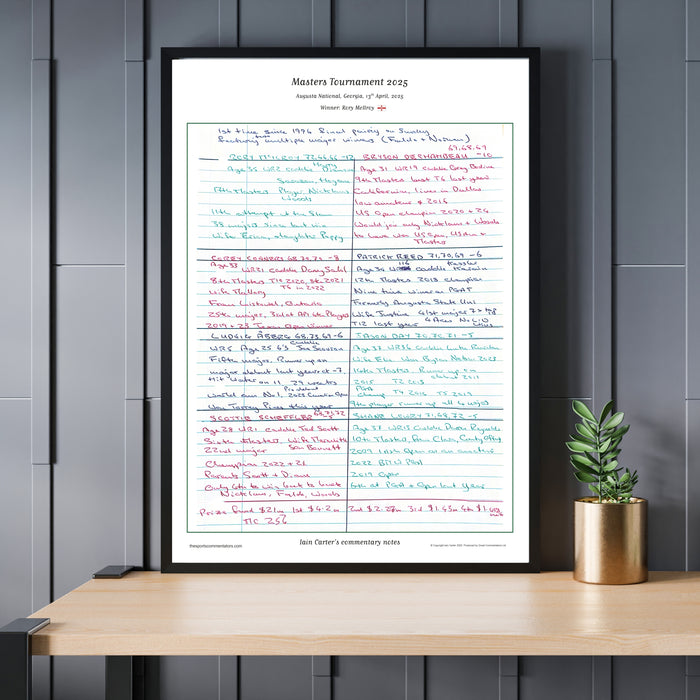 Masters Tournament 2025
Augusta National, Georgia, 13th April, 2025
Winner: Rory McIlroy
1st time since 1996 final pairing to Sunday
multiple major winners (Faldo + Norman)
69,68,69
RORY McILROY 72,66,66 -12
BRYSON DECHAMBEAU -10
Age 35 WR2 caddie Harry Diamond
17th Masters Player, Nicklaus
Woods
11th attempt at the Slam
38 majors since last win
Wife Erica, daughter Poppy
Age 31 WR19 caddie Greg Bodine
9th Masters best T6 last year
California, lives in Dallas
low amateur @ 2016
US Open champion 2020 + 24
Would join only Nicklaus + Woods
to have won US Open, US Am +
Masters
COREY CONNERS 68,70,71 -8
Age 33 WR21 caddie Danny Sahl
8th Masters T10 2020, 8th 2021
T6 in 2022
Wife Mallory
From Listowel, Ontario
25th major, 3rd at API + Players
2019 + 23 Texas Open winner
PATRICK REED 71,70,69 -6
116 Kessler
Age 34 caddie Karain
12th Masters 2018 champion
Nine time winner on PGAT
Formerly Augusta State Uni
Wife Justine 41st major 7 x
T12 last year
LUDVIG ÅBERG 68,73,69 -6
caddie
WR5 Age 25 6'3 Joe Skovron
Fifth major. Runner up on
major debut last year at -7.
Hit water on 11. 29 weeks
Pro debut
World am No.1, 2023 Canadian Open
Won Torrey Pines this year
JASON DAY 70,70,71 -5
Age 37 WR36 caddie Luke Reardon
Wife Ellie Won Byron Nelson 2023
14th Masters Runner up on
debut 2011
2015 T2 2013
PGA
champ T4 2016 T5 2019
SCOTTIE SCHEFFLER 68,71,72
Age 28 WR1 caddie Ted Scott
Sixth Masters, Wife Meredith
22nd major Son Bennett
Champion 2022 + 24
Parents Scott + Diane
Only 4th to win back to back
Nicklaus, Faldo, Woods
SHANE LOWRY 71,68,72 -5
Age 38 WR13 caddie Darren Reynolds
10th Masters, from Clara, County Offaly
2009 Irish Open as an amateur
2022 BMW PGA
2019 Open
6th at PGA + Open last year
Prize fund $21m 1st $4.2m 2nd $2.27m 3rd $1.43m 4th $1.008
mill
Iain Carter's commentary notes
thesportscommentators.com